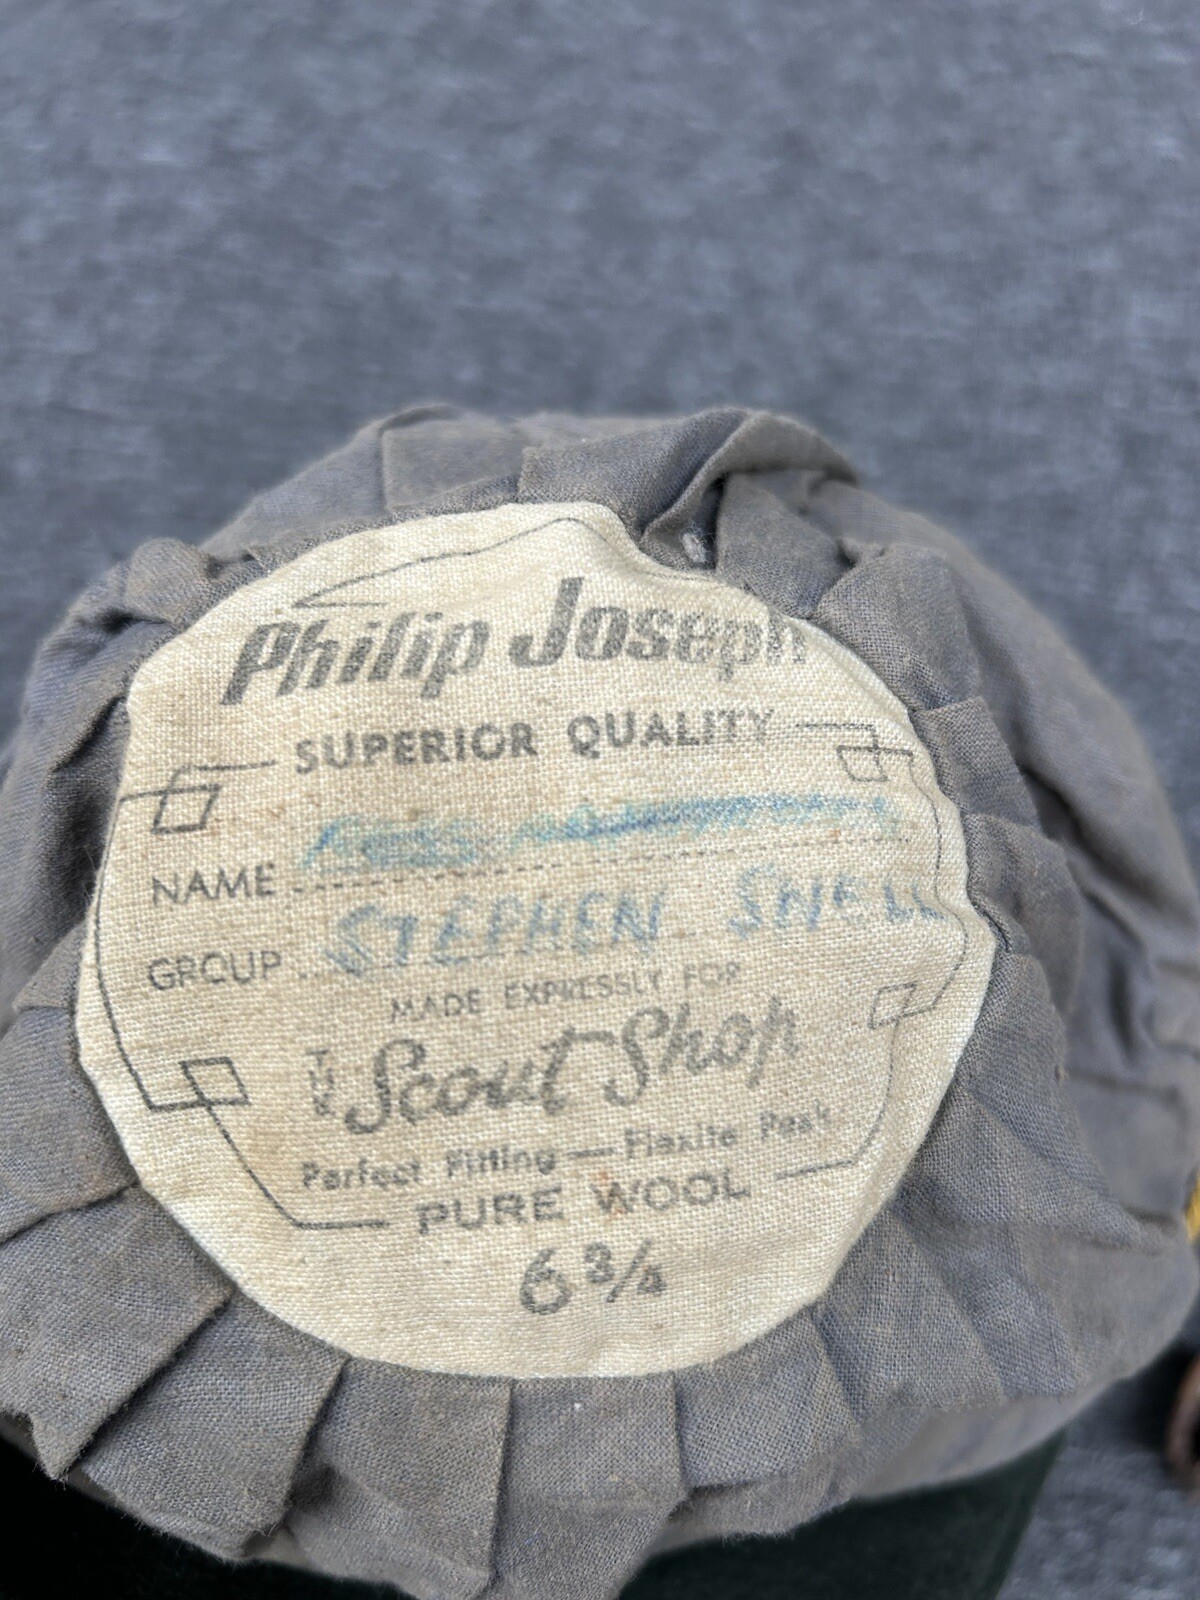 Philip Joseph
SUPERIOR QUALITY
NAME
STEPHEN SNELL
GROUP
MADE EXPRESSLY FOR
THE Scout Shop
Perfect Fitting — Flexite Peak
PURE WOOL
6 3/4